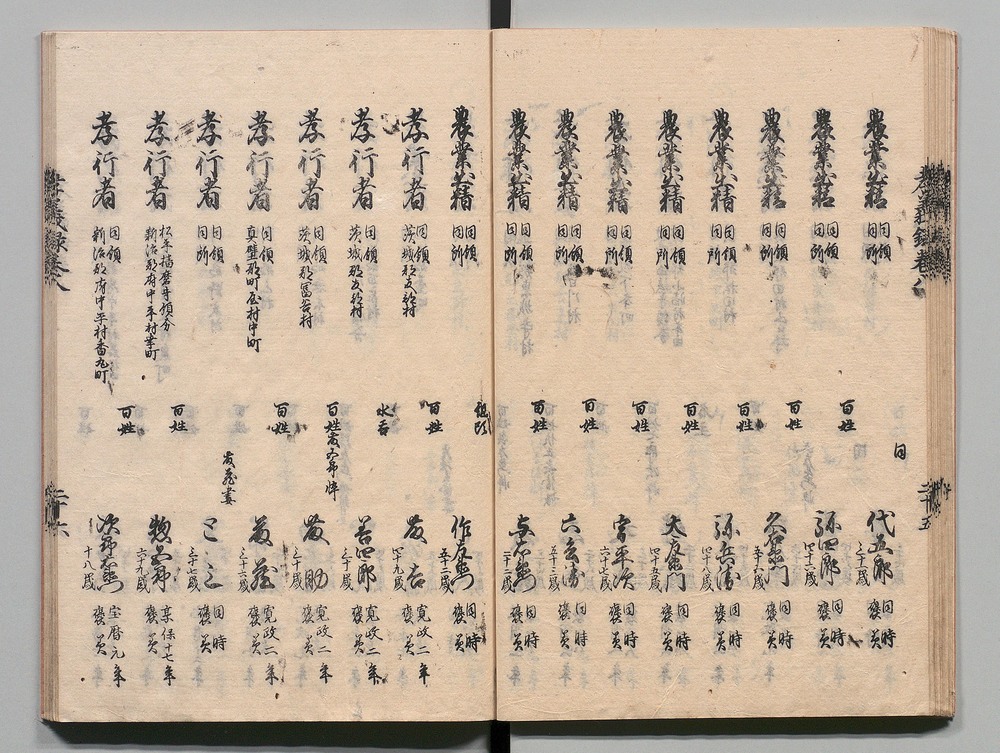 孝義録巻八
二十五
農業出精 同領同所 同 代五郎 三十一歳 同時褒美
農業出精 同領同所 百姓 弥四郎 四十六歳 同時褒美
農業出精 同領同所 百姓 久右衛門 五十六歳 同時褒美
農業出精 同領同所 百姓 弥兵衛 四十八歳 同時褒美
農業出精 同領同所 百姓 大右衛門 四十五歳 同時褒美
農業出精 同領同所 百姓 宇平次 六十六歳 同時褒美
農業出精 同領同所 百姓 六兵衛 五十三歳 同時褒美
農業出精 同領同所 百姓 与右衛門 二十二歳 同時褒美
農業出精 同領同所 組頭 作左衛門 五十二歳 同時褒美
孝行者 同領茨城郡友部村 百姓 友吉 四十九歳 寛政二年褒美
孝行者 同領茨城郡友部村 水呑 善四郎 三十歳 寛政二年褒美
孝行者 同領茨城郡富谷村 百姓友五郎悴 友助 三十歳 寛政二年褒美
孝行者 同領真壁郡町屋村中町 百姓 友蔵 三十六歳 寛政二年褒美
孝行者 同領同所 友蔵妻 こよ 三十七歳 同時褒美
孝行者 松平播磨守領分新治郡府中平村幸町 百姓 惣五郎 六十九歳 享保十七年褒美
孝行者 同領新治郡府中平村香丸町 百姓 次郎右衛門 十八歳 宝暦元年褒美
孝義録巻八
二十六